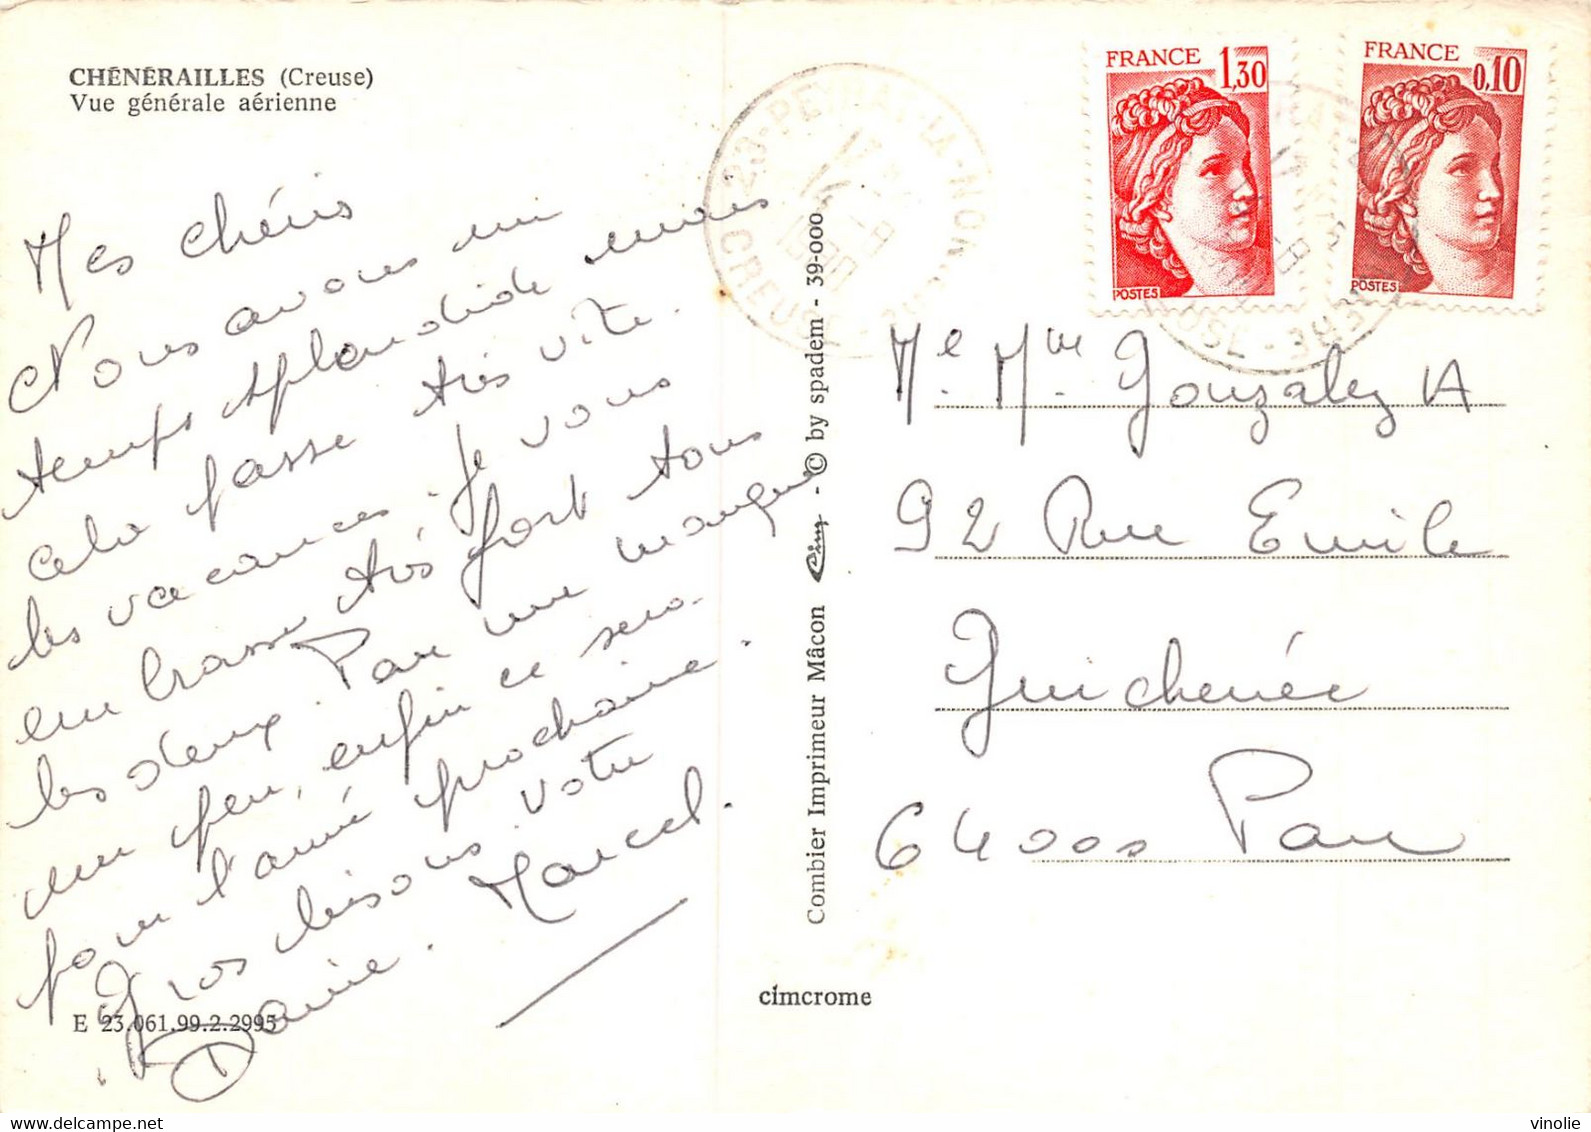 CHÉNÉRAILLES (Creuse)
Vue générale aérienne
Mes chéris
Nous avons un
temps splendide mais
cela passe très vite.
les vacances. Je vous
embrasse très fort tous
les deux. Pau me manque
un peu, enfin ce sera
pour l'anné prochaine.
Gros bisous. Votre
Marcel.
E 23.061.99.2.2995
23-PEYRAT-LA-NONIERE
CREUSE
FRANCE 1,30
POSTES
FRANCE 0,10
POSTES
Combier Imprimeur Mâcon Cim - © by spadem - 39-000
cimcrome
Mr. Mme Gonzalez A
92 Rue Emile
Guichenée
64000 Pau
delcampe.net
vinolie